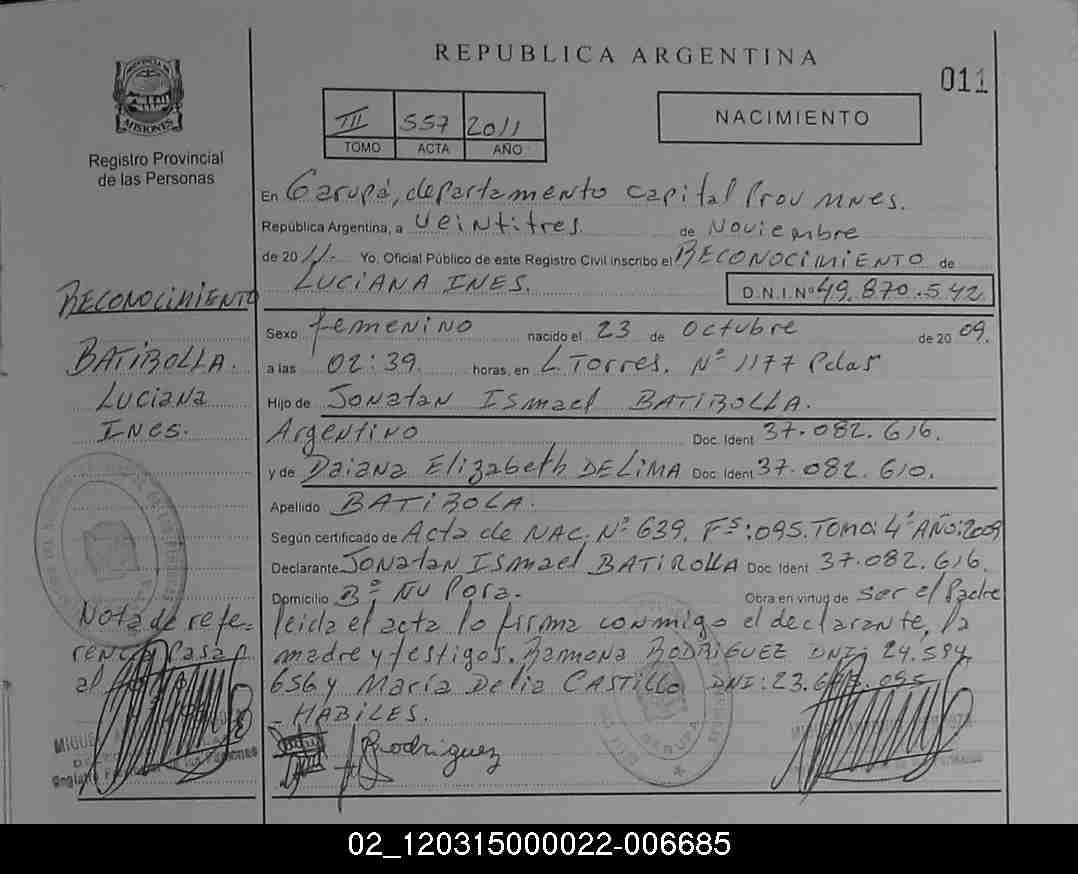 REPUBLICA ARGENTINA
011
PROVINCIA DE
MISIONES
Registro Provincial
de las Personas
III 557 2011
TOMO ACTA AÑO
NACIMIENTO
En Garupá, departamento capital Prov MNes.
República Argentina, a veintitres de Noviembre
de 2011.- Yo, Oficial Público de este Registro Civil inscribo el RECONOCIMIENTO de
LUCIANA INES. D.N.I.Nº 49.870.542
Sexo femenino nacido el 23 de octubre de 2009.
a las 02:39. horas, en L. Torres. Nº 1177 Pdas
Hijo de Jonatan Ismael BATIROLLA.
Argentino Doc. Ident 37.082.616.
y de Daiana Elizabeth DE LIMA Doc. Ident 37.082.610.
Apellido BATIROLA.
Según certificado de Acta de NAC. Nº 639. Fs: 095. Tomo: 4º AÑO: 2009
Declarante Jonatan Ismael BATIROLLA Doc. Ident 37.082.616.
Domicilio Bº Ñu Pora. Obra en virtud de ser el Padre
leida el acta lo firma conmigo el declarante, la
madre y testigos. Ramona RODRIGUEZ DNI: 24.594.
656 y María Delia CASTILLO DNI: 23.
- HABILES.
Rodriguez
RECONOCIMIENTO
BATIROLLA.
Luciana
INES.
Nota de refe-
rencia pasa
al
GARUPA
02_120315000022-006685